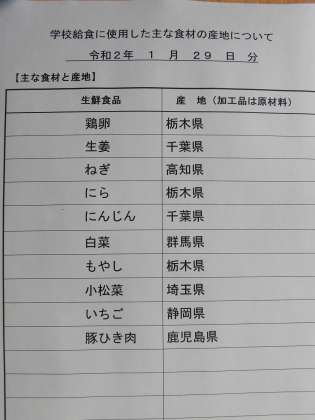 学校給食に使用した主な食材の産地について
令和2年 1 月 29 日 分
【主な食材と産地】
生鮮食品 産 地(加工品は原材料)
鶏卵 栃木県
生姜 千葉県
ねぎ 高知県
にら 栃木県
にんじん 千葉県
白菜 群馬県
もやし 栃木県
小松菜 埼玉県
いちご 静岡県
豚ひき肉 鹿児島県